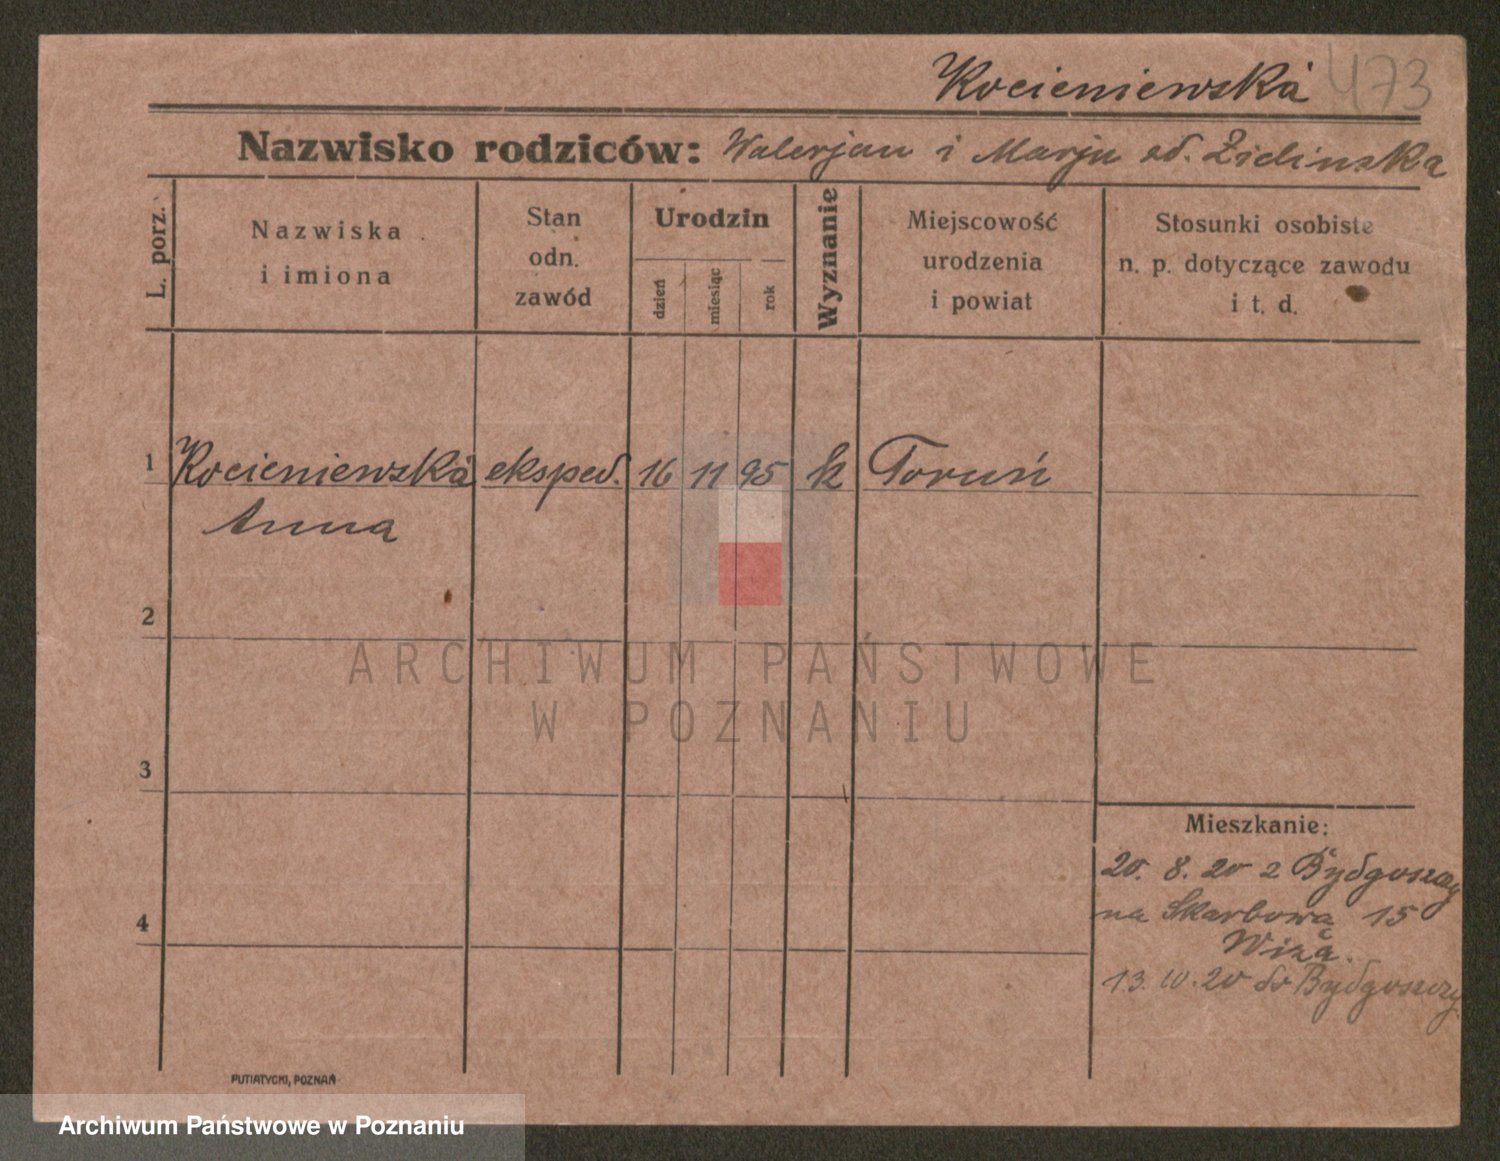 Kocieniewska 473
Nazwisko rodziców: Walerjan i Marja od. Zielinska
L. porz.
Nazwiska
i imiona
Stan
odn.
zawód
Urodzin
dzień
miesiąc
rok
Wyznanie
Miejscowość
urodzenia
i powiat
Stosunki osobiste
n. p. dotyczące zawodu
i t. d.
1 Kocieniewska eksped. 16 11 95 k Toruń
Anna
2
ARCHIWUM PAŃSTWOWE
W POZNANIU
3
Mieszkanie:
20. 8. 20 z Bydgoszczy
4
na Skarbową 15
Wizą.
13. 10. 20 do Bydgoszczy
PUTIATYCKI, POZNAŃ
Archiwum Państwowe w Poznaniu